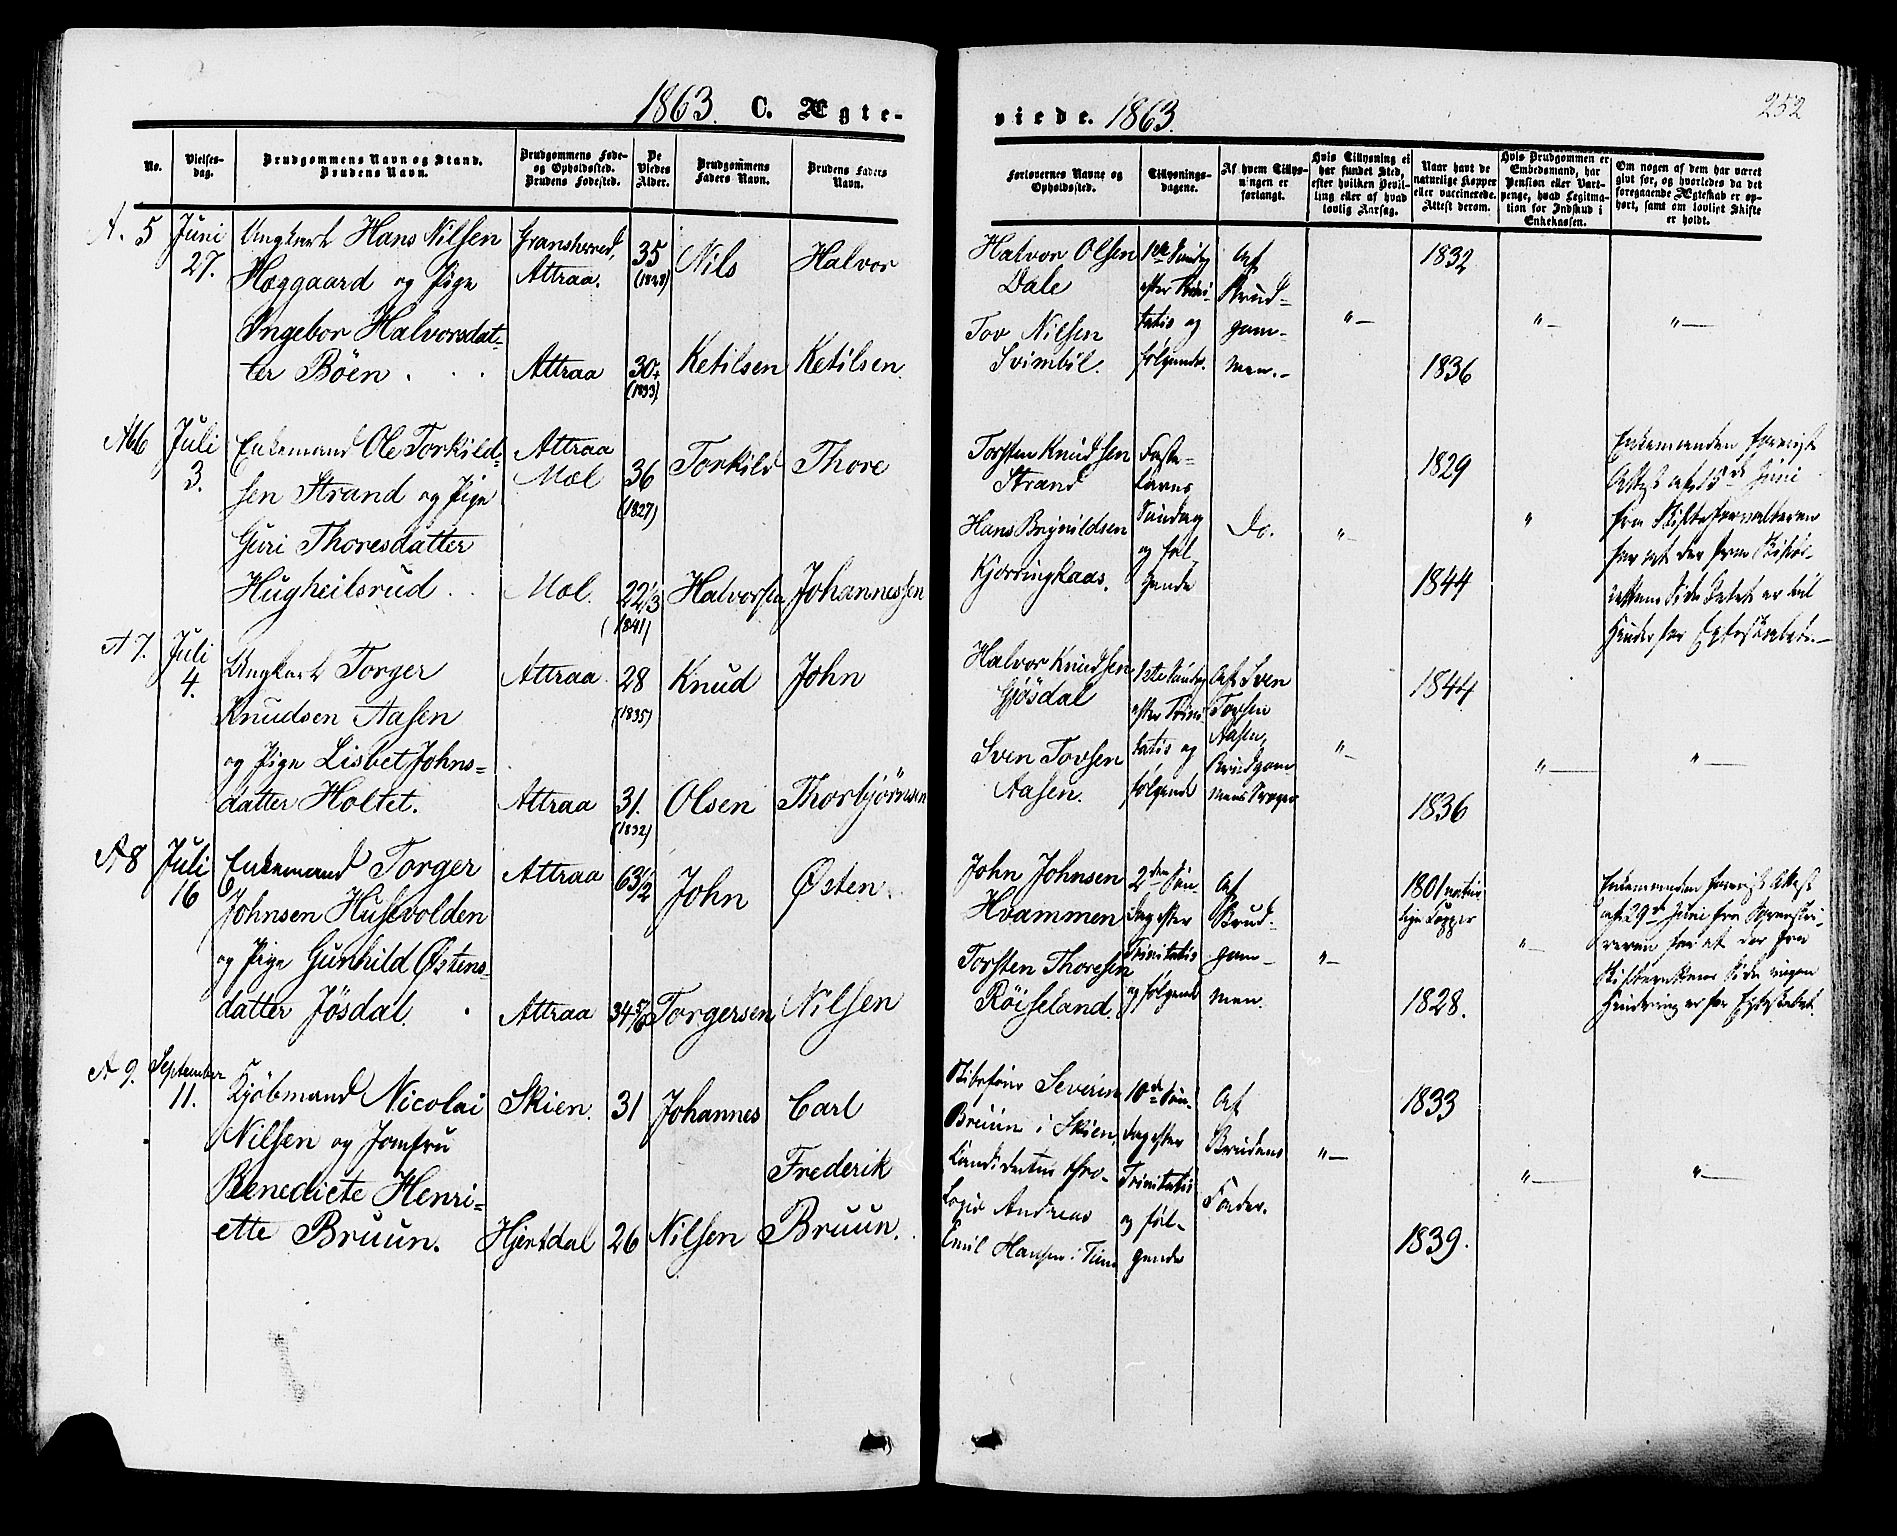 1863. C. Ægte-
viede. 1863.
252
No.
Vielses-
dag.
Brudgommens Navn og Stand.
Brudens Navn.
Brudgommens Føde-
og Opholdssted.
Brudens Fødested.
De
Viedes
Alder.
Brudgommens
Faders Navn.
Brudens Faders
Navn.
Forlovernes Navne og
Opholdssted.
Tillysnings-
dagene.
Af hvem Tillys-
ningen er
forlangt.
Hvis Tillysning ei
har fundet Sted,
efter hvilken Bevil-
ling eller af hvad
lovlig Aarsag.
Naar havt de
naturlige Kopper
eller vaccinerede.
Attest derom.
Hvis Brudgommen er
Embedsmand, har
Pension eller Vart-
penge, hvad Legitima-
tion for Indskud i
Enkekassen.
Om nogen af dem har været
gift før, og hvorledes da det
foregaaende Ægteskab er op-
hørt, samt om lovligt Skifte
er holdt.
A. 5
Juni
27.
Ungkarl Hans Nilsen
Hæggaard og Pige
Ingebor Halvorsdat-
ter Böen . .
Gransherred,
Attraa.
Attraa
35
(1828)
30
(1833)
Nils
Ketilsen
Halvor
Ketilsen.
Halvor Olsen
Dale
Tov Nilsen
Svimbil.
1ste Søndag
efter Trini-
tatis og
følgende.
Af
Brud-
gom-
men.
"—
1832
1836
"—
"—
A6
Juli
3.
Enkemand Ole Torkild-
sen Strand og Pige
Guri Thoresdatter
Hugheilsrud . .
Attraa
Mæl
Mæl.
36
(1827)
22 1/3
(1841)
Torkild
Halvorsen
Thore
Johannessen
Torsten Knudsen
Strand
Hans Brynildsen
Kjærringkaas.
Faste-
lavns
Søndag
og føl-
gende
Do.
"—
1829
1844
"
Enkemanden foreviist
Attest af 15de Juni
fra Skifteforvalteren
for at der fra Skifte-
rettens Side Intet er til
Hinder for Egteskabet.—
A 7.
Juli
4.
Ungkarl Torger
Knudsen Aasen
og Pige Lisbet Johns-
datter Holtet.
Attraa
Attraa
28
(1835)
31.
(1832)
Knud
Olsen
John
Thorbjørnsen
Halvor Knudsen
Gjøsdal
Sven Tovsen
Aasen.
1ste Søndag
efter Trini-
tatis og
følgende
Af Sven
Tovsen
Aasen,
Brudgom
mens
"—
1844
1836
"—
"—
A 8
Juli
16
Enkemand Torger
Johnsen Husevolden
og Pige Gunhild Østens-
datter Jösdal. .
Attraa
Attraa
63 1/2
34 5/6
John
Torgersen
Østen
Nilsen
John Johnsen
Hvammen
Torsten Thoresen
Röiseland.
2den Søn-
dag efter
Trinitatis
og følgende
Af
Brud-
gom-
men.
"—
1801 natur
lige Kopper
1828.
"—
Enkemanden foreviist Attest
af 29de Juni fra Sorenskri-
veren for at der fra
Skifterettens Side ingen
Hindring er for Egteskabet.
A 9.
September
11.
Kjöbmand Nicolai
Nilsen og Jomfru
Benedicte Henri-
ette Bruun.
Skien.
Hjertdal
31
26
Johannes
Nilsen
Carl
Frederik
Bruun.
Severin
Bruun i Skien,
Candidatus theo-
logiæ Andreas
Emil Hansen i Tinn
10de Søn-
dag efter
Trinitatis
og føl-
gende
Af
Brudens
Fader.
"—
1833
1839.
"—
"—